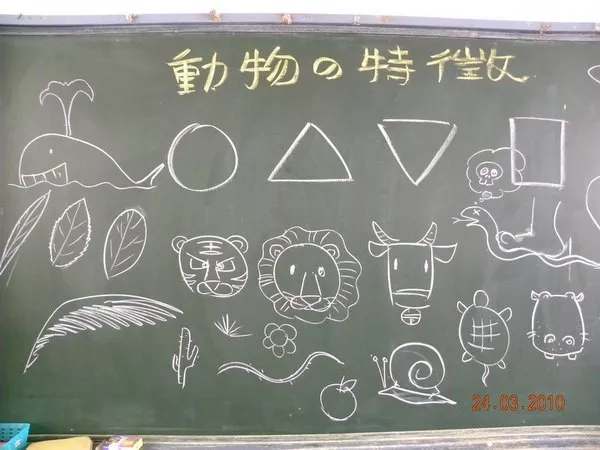 動物の特徵
24.03.2010